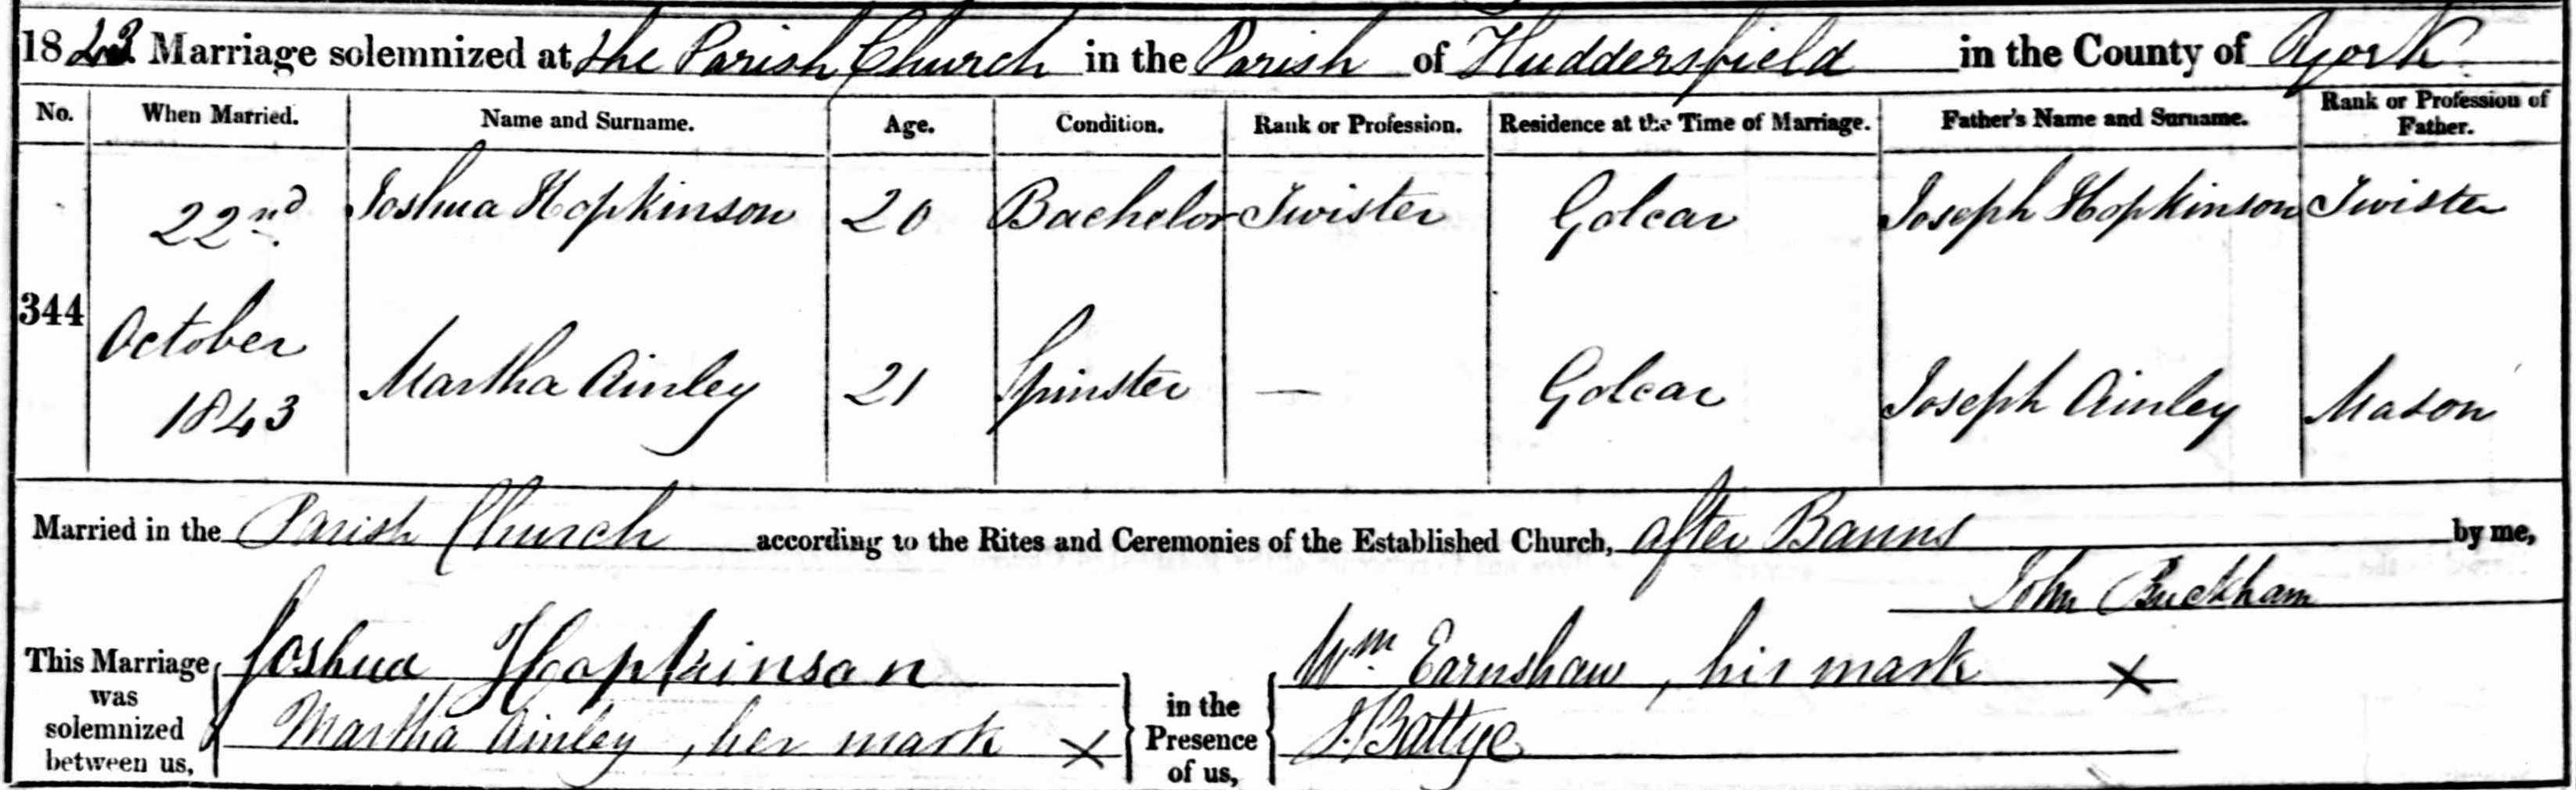 1843 Marriage solemnized at the Parish Church in the Parish of Huddersfield in the County of York
No. When Married. Name and Surname. Age. Condition. Rank or Profession. Residence at the Time of Marriage. Father's Name and Surname. Rank or Profession of Father.
344
22nd October 1843
Joshua Hopkinson 20 Bachelor Twister Golcar Joseph Hopkinson Twister
Martha Ainley 21 Spinster — Golcar Joseph Ainley Mason
Married in the Parish Church according to the Rites and Ceremonies of the Established Church, after Banns by me,
John Buckham
This Marriage was solemnized between us,
Joshua Hopkinson
Martha Ainley, her mark X
in the Presence of us,
Wm. Earnshaw, his mark X
J. Battye